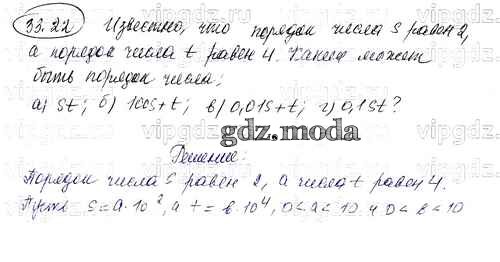 33.22 Известно, что порядок числа s равен 2,
а порядок числа t равен 4. Каким может
быть порядок числа:
а) st; б) 100s+t; в) 0,01s+t; г) 0,1st?
gdz.moda
Решение:
Порядок числа s равен 2, а числа t равен 4.
Пусть s=a·10², а t=b·10⁴, 0<a<10 и 0<b<10